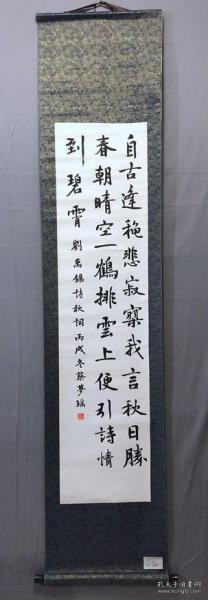 自古逢穐悲寂寞我言秋日勝
春朝晴空一鶴排雲上便引詩情
到碧霄 劉禹錫詩秋詞丙戌冬蔡夢瑶
孔夫子旧书网